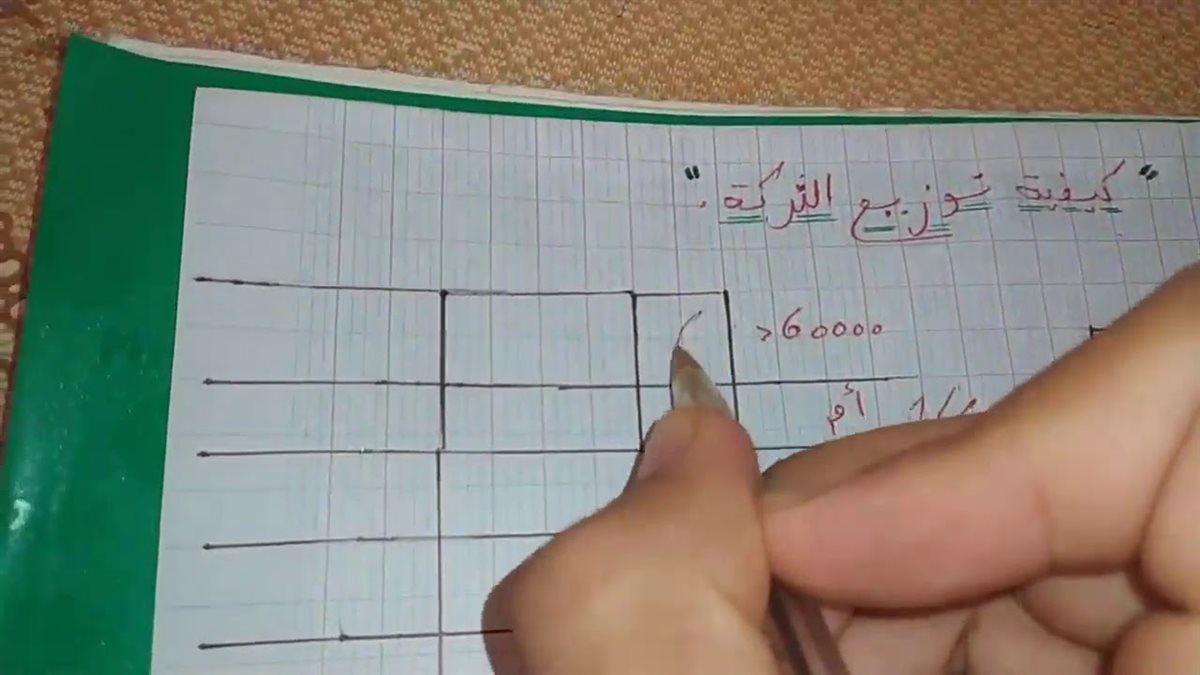 "كيفية توزيع التركة".
>60000
أم